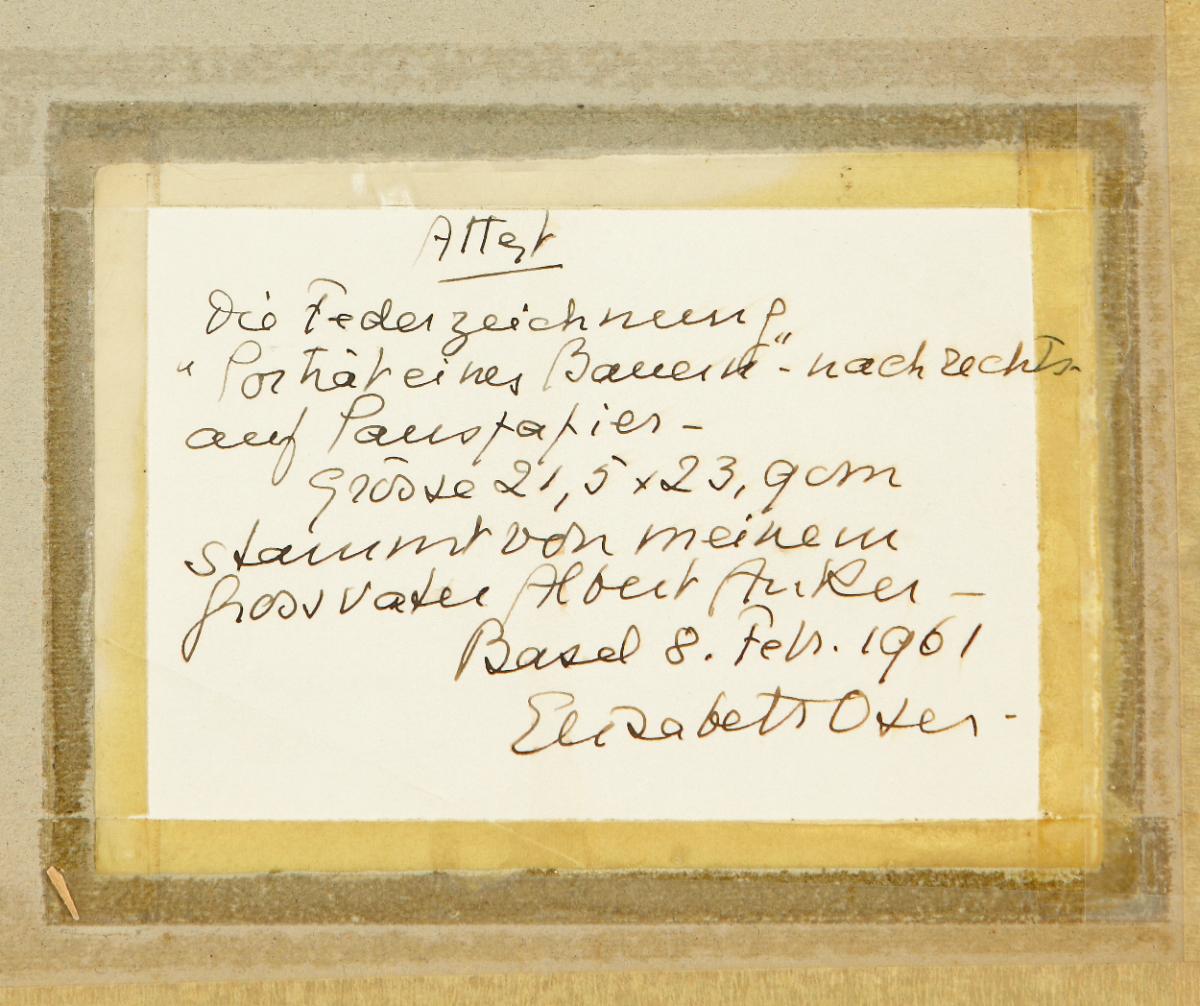 Attest
Die Federzeichnung
"Porträt eines Bauern" - nach rechts -
auf Pauspapier -
Grösse 21,5 x 23,9 cm
stammt von meinem
Grossvater Albert Anker -
Basel 8. Febr. 1961
Elisabeth Oser -